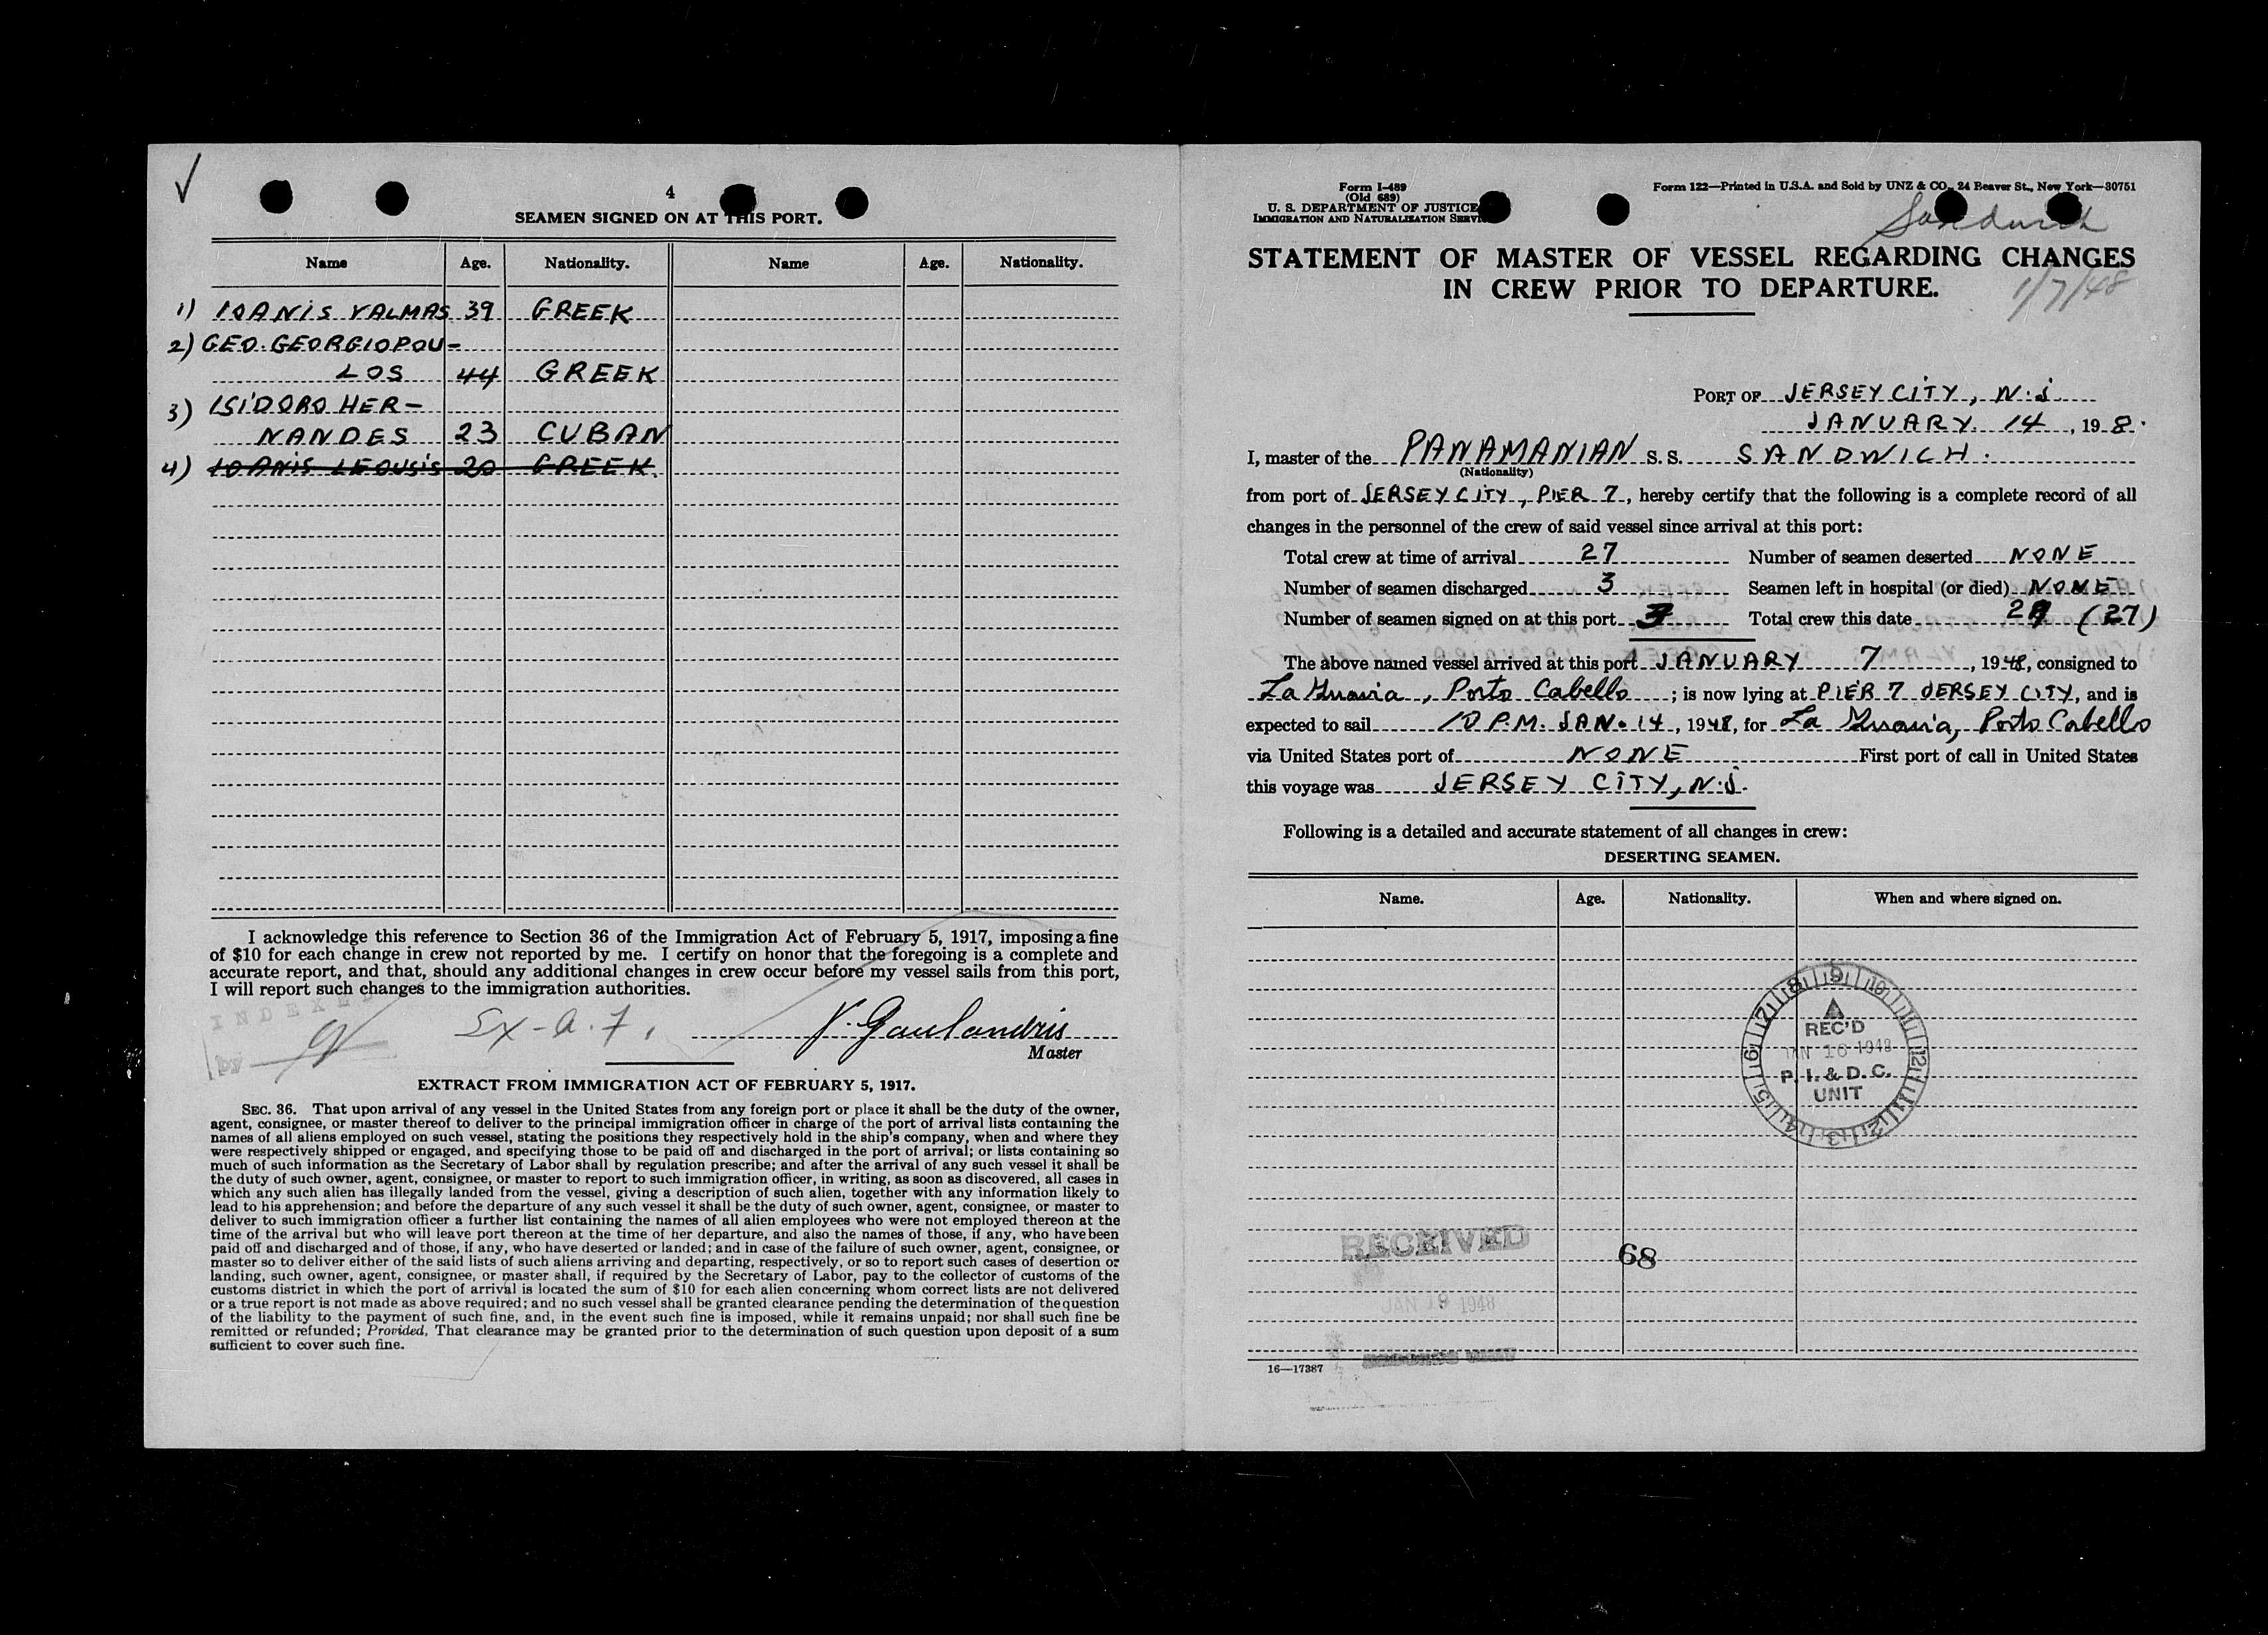 4
SEAMEN SIGNED ON AT THIS PORT.
Name Age. Nationality. Name Age. Nationality.
1) IOANIS VALMAS 39 GREEK
2) GEO. GEORGIOPOU-
LOS 44 GREEK
3) ISIDORO HER-
NANDES 23 CUBAN
4) IOANIS LEOUSIS 20 GREEK
I acknowledge this reference to Section 36 of the Immigration Act of February 5, 1917, imposing a fine
of $10 for each change in crew not reported by me. I certify on honor that the foregoing is a complete and
accurate report, and that, should any additional changes in crew occur before my vessel sails from this port,
I will report such changes to the immigration authorities.
INDEXED
by
Ex-a.7. V. Goulandris
Master
EXTRACT FROM IMMIGRATION ACT OF FEBRUARY 5, 1917.
SEC. 36. That upon arrival of any vessel in the United States from any foreign port or place it shall be the duty of the owner,
agent, consignee, or master thereof to deliver to the principal immigration officer in charge of the port of arrival lists containing the
names of all aliens employed on such vessel, stating the positions they respectively hold in the ship's company, when and where they
were respectively shipped or engaged, and specifying those to be paid off and discharged in the port of arrival; or lists containing so
much of such information as the Secretary of Labor shall by regulation prescribe; and after the arrival of any such vessel it shall be
the duty of such owner, agent, consignee, or master to report to such immigration officer, in writing, as soon as discovered, all cases in
which any such alien has illegally landed from the vessel, giving a description of such alien, together with any information likely to
lead to his apprehension; and before the departure of any such vessel it shall be the duty of such owner, agent, consignee, or master to
deliver to such immigration officer a further list containing the names of all alien employees who were not employed thereon at the
time of the arrival but who will leave port thereon at the time of her departure, and also the names of those, if any, who have been
paid off and discharged and of those, if any, who have deserted or landed; and in case of the failure of such owner, agent, consignee, or
master so to deliver either of the said lists of such aliens arriving and departing, respectively, or so to report such cases of desertion or
landing, such owner, agent, consignee, or master shall, if required by the Secretary of Labor, pay to the collector of customs of the
customs district in which the port of arrival is located the sum of $10 for each alien concerning whom correct lists are not delivered
or a true report is not made as above required; and no such vessel shall be granted clearance pending the determination of the question
of the liability to the payment of such fine, and, in the event such fine is imposed, while it remains unpaid; nor shall such fine be
remitted or refunded; Provided, That clearance may be granted prior to the determination of such question upon deposit of a sum
sufficient to cover such fine.
Form I-489
(Old 689)
U. S. DEPARTMENT OF JUSTICE
IMMIGRATION AND NATURALIZATION SERVI
Form 122—Printed in U.S.A. and Sold by UNZ & CO., 24 Beaver St., New York—30751
Sandwich
STATEMENT OF MASTER OF VESSEL REGARDING CHANGES
IN CREW PRIOR TO DEPARTURE.
1/7/48
PORT OF JERSEY CITY, N.J
JANUARY 14, 19 8.
I, master of the PANAMANIAN S. S. SANDWICH.
(Nationality)
from port of JERSEY CITY, PIER 7, hereby certify that the following is a complete record of all
changes in the personnel of the crew of said vessel since arrival at this port:
Total crew at time of arrival 27 Number of seamen deserted NONE
Number of seamen discharged 3 Seamen left in hospital (or died) NONE
Number of seamen signed on at this port 3 Total crew this date (27)
The above named vessel arrived at this port JANUARY 7, 1948, consigned to
La Guaria, Porto Cabello; is now lying at PIER 7 JERSEY CITY, and is
expected to sail 10 P.M. JAN. 14, 1948, for La Guaria, Porto Cabello
via United States port of NONE First port of call in United States
this voyage was JERSEY CITY, N.J.
Following is a detailed and accurate statement of all changes in crew:
DESERTING SEAMEN.
Name. Age. Nationality. When and where signed on.
REC'D
JAN 16 1948
P. I. & D. C.
UNIT
RECEIVED
68
JAN 19 1948
16—17387